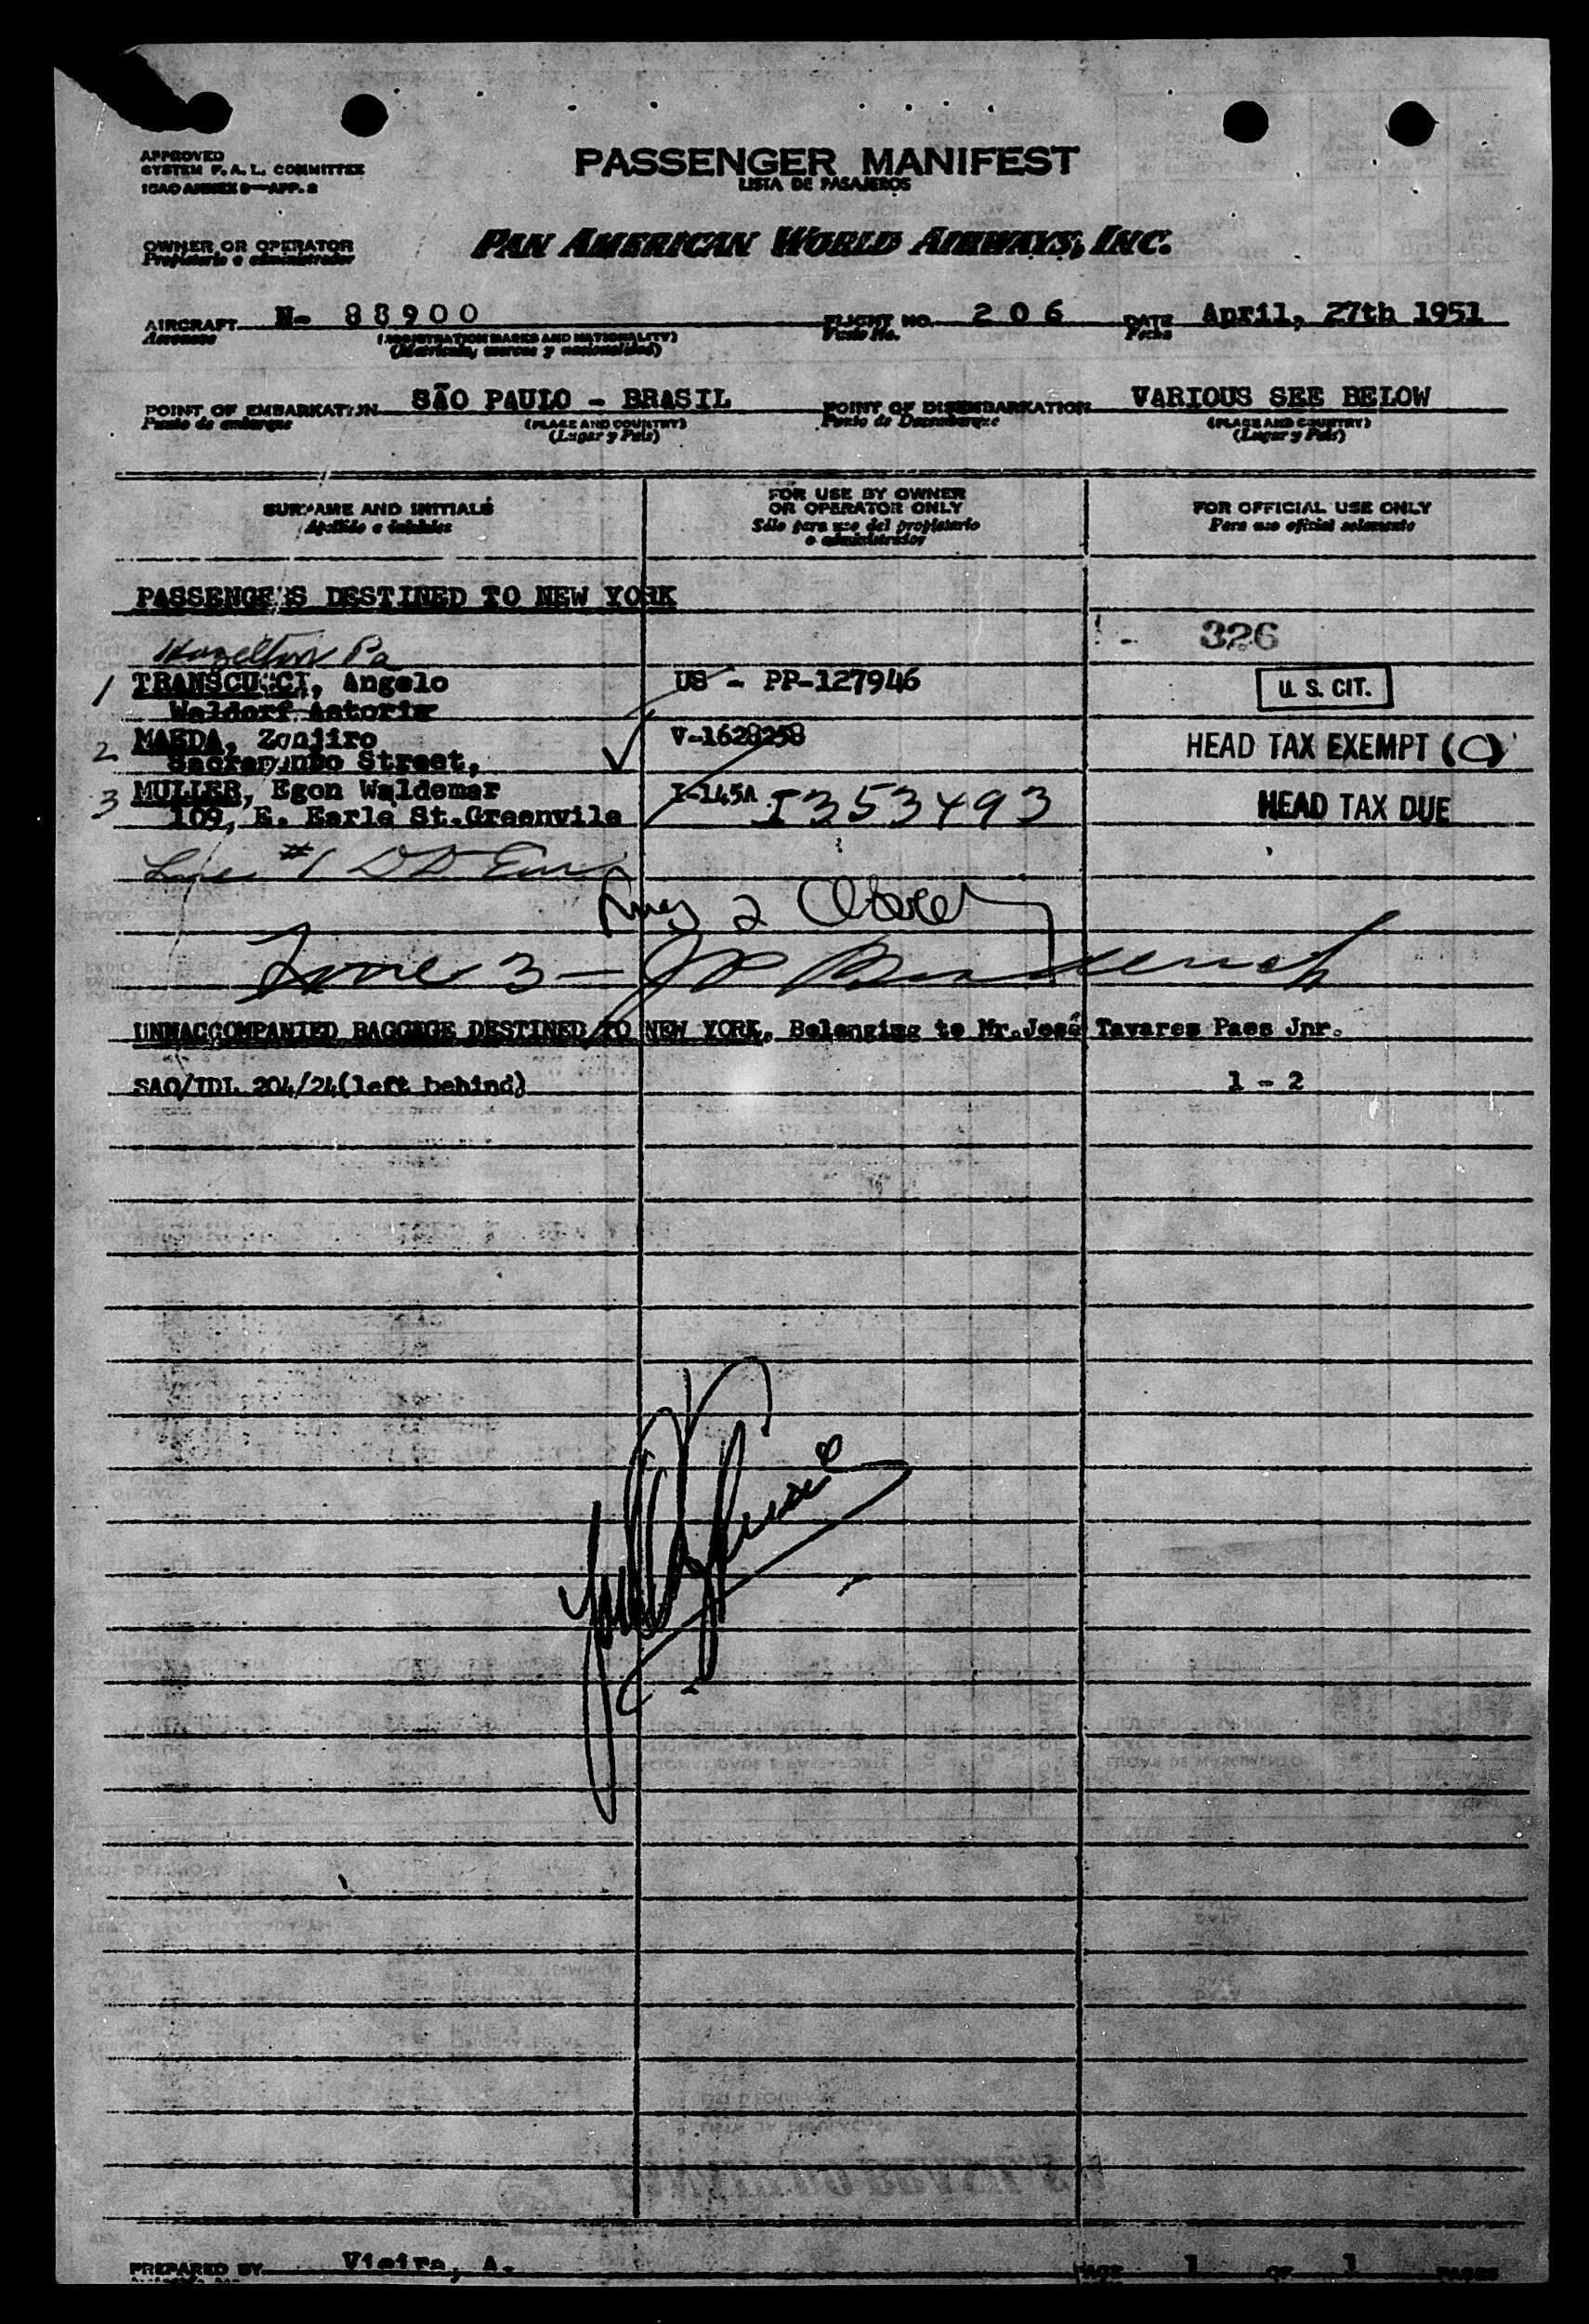 APPROVED
SYSTEM F. A. L. COMMITTEE
ICAO ANNEX 9—APP. 2
PASSENGER MANIFEST
LISTA DE PASAJEROS
OWNER OR OPERATOR
Propietario o administrador
PAN AMERICAN WORLD AIRWAYS, INC.
AIRCRAFT N- 88900 FLIGHT NO. 206 DATE April, 27th 1951
Aeronave (REGISTRATION MARKS AND NATIONALITY) Vuelo No. Fecha
(Matrícula, marcas y nacionalidad)
POINT OF EMBARKATION SÃO PAULO - BRASIL POINT OF DISEMBARKATION VARIOUS SEE BELOW
Punto de embarque (PLACE AND COUNTRY) Punto de Desembarque (PLACE AND COUNTRY)
(Lugar y País) (Lugar y País)
SURNAME AND INITIALS
Apellido e iniciales
FOR USE BY OWNER
OR OPERATOR ONLY
Sólo para uso del propietario
o administrador
FOR OFFICIAL USE ONLY
Para uso oficial solamente
PASSENGERS DESTINED TO NEW YORK
326
Hazelton Pa
1 TRANSCUCCI, Angelo US - PP-127946 U. S. CIT.
Waldorf Astoria
2 MAEDA, Zenjiro V-1628258 HEAD TAX EXEMPT (C)
Sacramento Street,
3 MULLER, Egon Waldemar I-145A I353493 HEAD TAX DUE
109, E. Earle St.Greenvile
Line #1
Line 3 -
UNNACCOMPANIED BAGGAGE DESTINED TO NEW YORK, Belonging to Mr.José Tavares Paes Jnr.
SAO/IDL 204/24(left behind) 1 - 2
PREPARED BY Vieira, A. PAGE 1 OF 1 PAGES